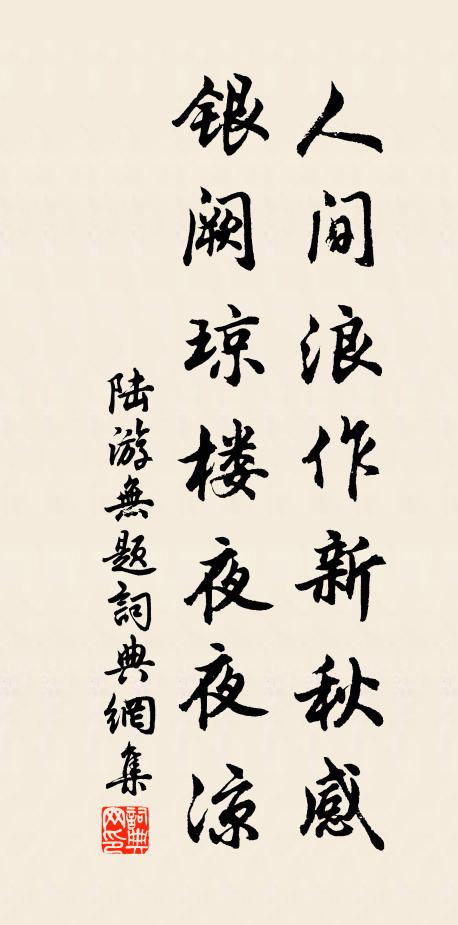 人间浪作新秋感
银阙琼楼夜夜凉
陆游無题詞典網集
詞典
网印